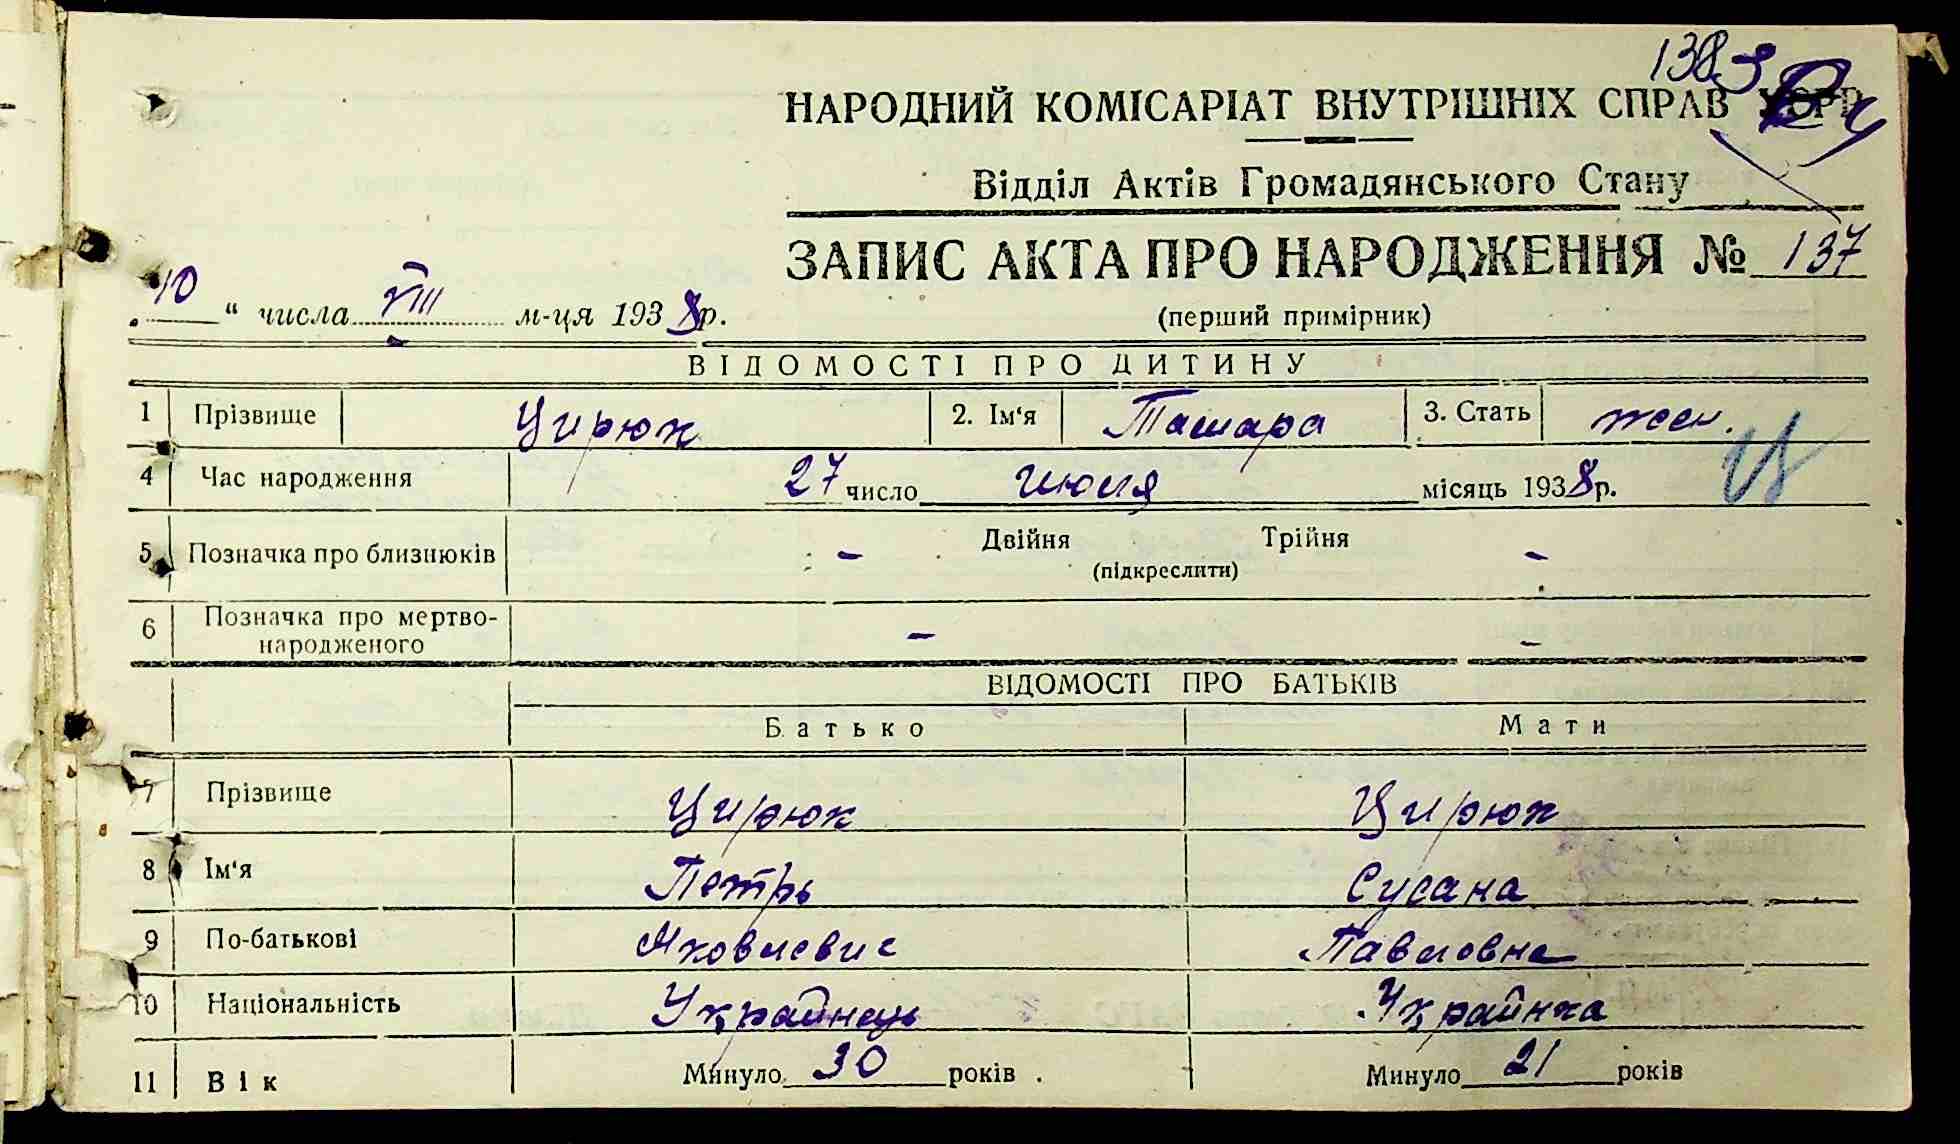 138
НАРОДНИЙ КОМІСАРІАТ ВНУТРІШНІХ СПРАВ УСРР
Відділ Актів Громадянського Стану
ЗАПИС АКТА ПРО НАРОДЖЕННЯ № 137
„10“ числа VIII м-ця 1938р.
(перший примірник)
ВІДОМОСТІ ПРО ДИТИНУ
1 Прізвище Цирюк 2. Ім‘я Тамара 3. Стать жен.
4 Час народження 27 число июля місяць 1938р.
5 Позначка про близнюків - Двійня Трійня -
(підкреслити)
6 Позначка про мертво-
народженого - -
ВІДОМОСТІ ПРО БАТЬКІВ
Батько Мати
7 Прізвище Цирюк Цирюк
8 Ім‘я Петръ Сусана
9 По-батькові Яковлевич Павловна
10 Національність Українець Українка
11 Вік Минуло 30 років Минуло 21 років